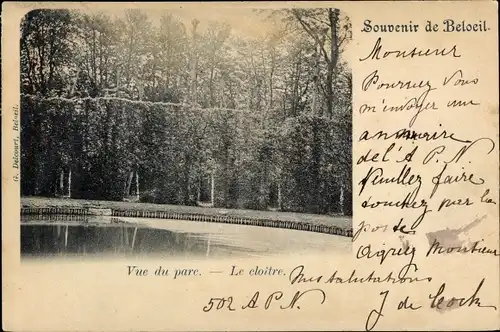 Souvenir de Beloeil.
Monsieur
Pourriez Vous
m'envoyer une
annuaire
de l'A P. N.
Veuillez faire
toucher par la
poste.
Agréez Monsieur
mes salutations
J de Cock
502 A P. N
Vue du parc. — Le cloître.
G. Delcourt, Beloeil.